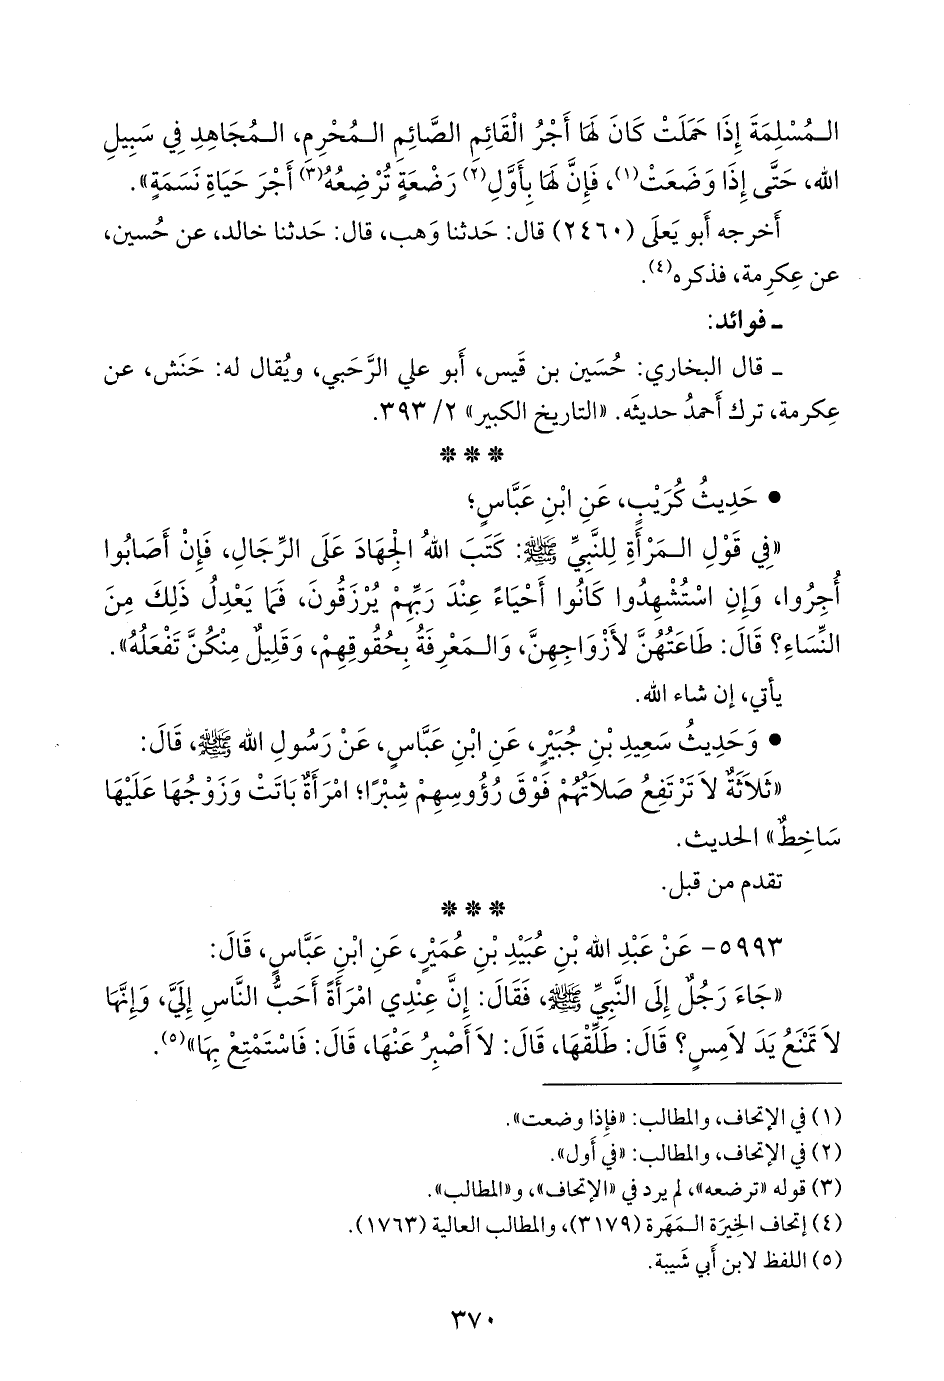 الـمُسْلِمَةَ إِذَا حَمَلَتْ كَانَ لَهَا أَجْرُ الْقَائِمِ الصَّائِمِ الـمُحْرِمِ، الـمُجَاهِدِ فِي سَبِيلِ
الله، حَتَّى إِذَا وَضَعَتْ(١)، فَإِنَّ لَهَا بِأَوَّلِ(٢) رَضْعَةٍ تُرْضِعُهُ(٣) أَجْرَ حَيَاةِ نَسَمَةٍ».
أَخرجه أَبو يَعلَى (٢٤٦٠) قال: حَدثنا وَهب، قال: حَدثنا خالد، عن حُسين،
عن عِكرِمة، فذكره(٤).
ـ فوائد:
ـ قال البخاري: حُسَين بن قَيس، أَبو علي الرَّحَبي، ويُقال له: حَنَش، عن
عِكرمة، ترك أَحمدُ حديثَه. «التاريخ الكبير» ٢/ ٣٩٣.
* * *
• حَدِيثُ كُرَيْبٍ، عَنِ ابْنِ عَبَّاسٍ؛
«فِي قَوْلِ الـمَرْأَةِ لِلنَّبِيِّ ﷺ: كَتَبَ اللهُ الْجِهَادَ عَلَى الرِّجَالِ، فَإِنْ أَصَابُوا
أُجِرُوا، وَإِنِ اسْتُشْهِدُوا كَانُوا أَحْيَاءً عِنْدَ رَبِّهِمْ يُرْزَقُونَ، فَمَا يَعْدِلُ ذَلِكَ مِنَ
النِّسَاءِ؟ قَالَ: طَاعَتُهُنَّ لأَزْوَاجِهِنَّ، وَالـمَعْرِفَةُ بِحُقُوقِهِمْ، وَقَلِيلٌ مِنْكُنَّ تَفْعَلُهُ».
يأتي، إن شاء الله.
• وَحَدِيثُ سَعِيدِ بْنِ جُبَيْرٍ، عَنِ ابْنِ عَبَّاسٍ، عَنْ رَسُولِ الله ﷺ، قَالَ:
«ثَلاَثَةٌ لاَ تَرْتَفِعُ صَلاَتُهُمْ فَوْقَ رُؤُوسِهِمْ شِبْرًا؛ امْرَأَةٌ بَاتَتْ وَزَوْجُهَا عَلَيْهَا
سَاخِطٌ» الحديث.
تقدم من قبل.
* * *
٥٩٩٣- عَنْ عَبْدِ الله بْنِ عُبَيْدِ بْنِ عُمَيْرٍ، عَنِ ابْنِ عَبَّاسٍ، قَالَ:
«جَاءَ رَجُلٌ إِلَى النَّبِيِّ ﷺ، فَقَالَ: إِنَّ عِنْدِي امْرَأَةً أَحَبُّ النَّاسِ إِلَيَّ، وَإِنَّهَا
لاَ تَمْنَعُ يَدَ لاَمِسٍ؟ قَالَ: طَلِّقْهَا، قَالَ: لاَ أَصْبِرُ عَنْهَا، قَالَ: فَاسْتَمْتِعْ بِهَا»(٥).
(١) في الإتحاف، والمطالب: «فإذا وضعت».
(٢) في الإتحاف، والمطالب: «في أول».
(٣) قوله «ترضعه»، لم يرد في «الإتحاف»، و«المطالب».
(٤) إتحاف الخِيرَة الـمَهَرة (٣١٧٩)، والمطالب العالية (١٧٦٣).
(٥) اللفظ لابن أبي شَيبة.
٣٧٠